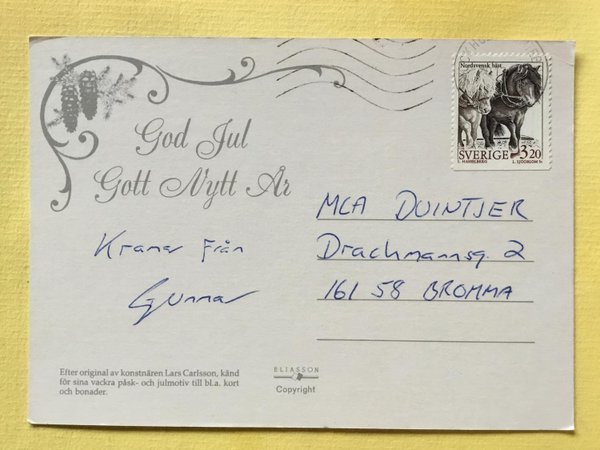 God Jul
Gott Nytt År
Kramar från
Gunnar
Nordsvensk häst
SVERIGE 3.20
L. SJÖÖBLOM Sc
MCA DUINTJER
Drachmannsg. 2
161 58 BROMMA
Efter original av konstnären Lars Carlsson, känd
för sina vackra påsk- och julmotiv till bl.a. kort
och bonader.
ELIASSON
Copyright